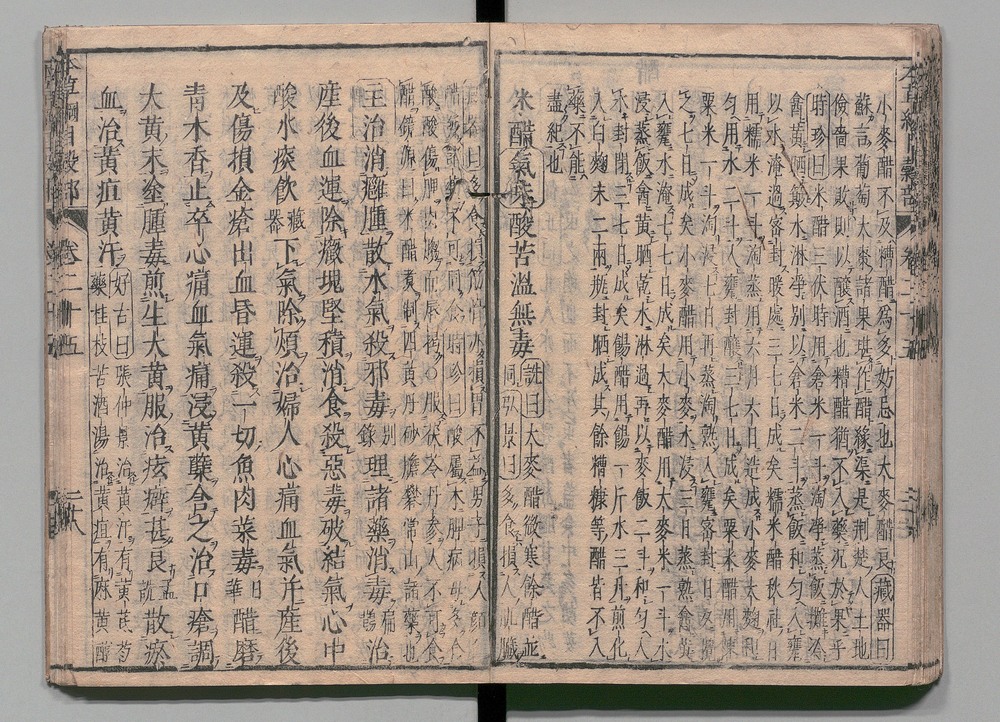 小麥醋不及糟醋為多妨忌也大麥醋良藏器曰
蘇言葡萄大棗諸果堪作醋緣渠是荆楚人土地
儉嗇果敗則以釀酒也糟醋猶不入藥況於果乎
時珍曰米醋三伏時用倉米一斗淘淨蒸飯攤冷
盦黄晒簸水淋淨別以倉米二斗蒸飯和勻入甕
以水淹過密封暖處三七日成矣糯米醋秋社日
用糯米一斗淘蒸用六月六日造成小麥大麴和
勻用水二斗入甕封釀三七日成矣粟米醋用陳
粟米一斗淘浸七日再蒸淘熟入甕密封日夕攪
之七日成矣小麥醋用小麥水浸三日蒸熟盦黄
入甕水淹七七日成矣大麥醋用大麥米一斗水
浸蒸飯盦黄晒乾水淋過再以麥飯二斗和勻入
水封閉三七日成矣餳醋用餳一斤水三升煎化
入白麴末二兩瓶封晒成其餘糟糠等醋皆不入
藥不能
盡紀也
米醋氣味酸苦溫無毒詵曰大麥醋微寒餘醋並
同弘景曰多食損人肌臟
主治消癰腫散水氣殺邪毒別錄理諸藥消毒扁鵲治
產後血運除癥塊堅積消食殺惡毒破結氣心中
酸水痰飲藏器下氣除煩治婦人心痛血氣并產後
及傷損金瘡出血昏運殺一切魚肉菜毒日華醋磨
青木香止卒心痛血氣痛浸黄蘗含之治口瘡調
大黄末塗腫毒煎生大黄服治痃癖甚良孟詵散瘀
血治黄疸黄汗好古曰張仲景治黄汗有黄芪芍
藥桂枝苦酒湯治黄疸有麻黄醇
本草綱目穀部
卷二十五
二十八